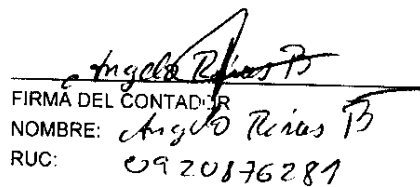 Angelo Rivas B
FIRMA DEL CONTADOR
NOMBRE: Angelo Rivas B
RUC: 0920876281